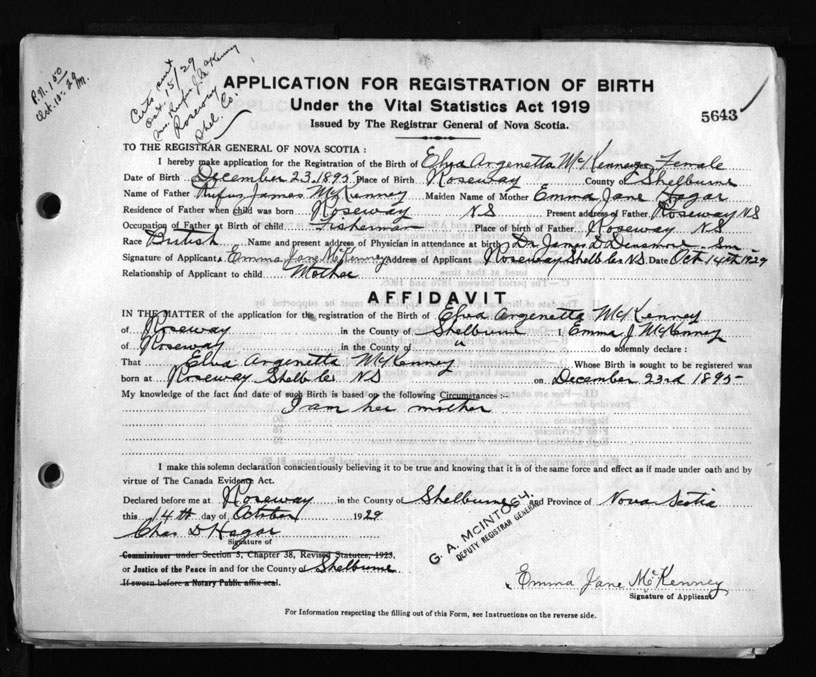 P.N. 1 00
Oct. 15 - 29
M.
Oct. 15/29
Mrs. Rufus J. McKenney
Roseway
Shel. Co.
APPLICATION FOR REGISTRATION OF BIRTH
Under the Vital Statistics Act 1919
5643
Issued by The Registrar General of Nova Scotia.
TO THE REGISTRAR GENERAL OF NOVA SCOTIA :
I hereby make application for the Registration of the Birth of Elva Argenetta McKenney Female
Date of Birth December 23, 1895 Place of Birth Roseway County of Shelburne
Name of Father Rufus James McKenney Maiden Name of Mother Emma Jane
Residence of Father when child was born Roseway NS Present address of Father Roseway NS
Occupation of Father at Birth of child Fisherman Place of birth of Father Roseway NS
Race British Name and present address of Physician in attendance at birth Dr James D Densmore
Signature of Applicant Emma Jane McKenney Address of Applicant Roseway Shelb Co NS. Date Oct 14th 1929
Relationship of Applicant to child Mother
AFFIDAVIT
IN THE MATTER of the application for the registration of the Birth of Elva Argenetta McKenney
of Roseway in the County of Shelburne I, Emma J McKenney
of Roseway in the County of " do solemnly declare :
That Elva Argenetta McKenney Whose Birth is sought to be registered was
born at Roseway Shelb Co NS on December 23rd 1895
My knowledge of the fact and date of such Birth is based on the following Circumstances :-
I am her mother
I make this solemn declaration conscientiously believing it to be true and knowing that it is of the same force and effect as if made under oath and by
virtue of The Canada Evidence Act.
Declared before me at Roseway in the County of Shelburne and Province of Nova Scotia
this 14th day of October 1929
Chas D Hagar
Signature of
G. A. McINTOSH,
DEPUTY REGISTRAR GENERAL
Commissioner under Section 3, Chapter 38, Revised Statutes, 1923,
or Justice of the Peace in and for the County of Shelburne
If sworn before a Notary Public affix seal.
Emma Jane McKenney
Signature of Applicant
For Information respecting the filling out of this Form, see Instructions on the reverse side.